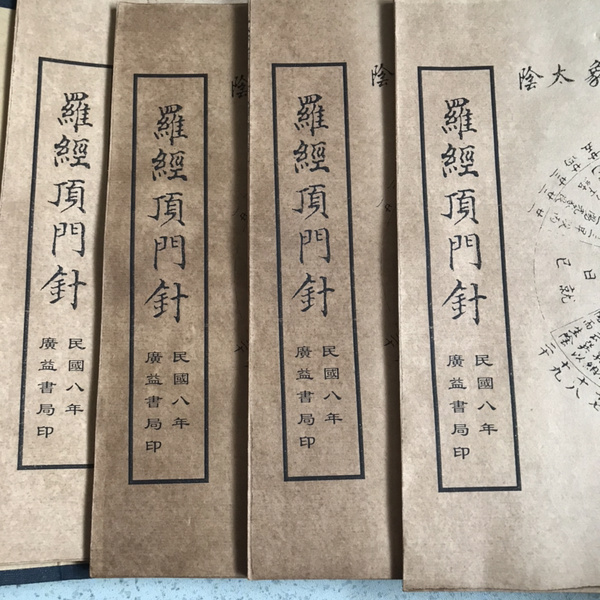 羅經頂門針
民國八年
廣益書局印
羅經頂門針
民國八年
廣益書局印
陰
羅經頂門針
民國八年
廣益書局印
陰
羅經頂門針
民國八年
廣益書局印
象太陰
日
已就